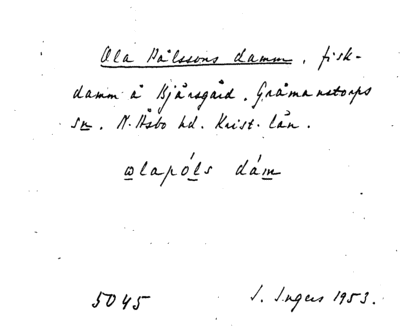 Ola Pålssons damm. fisk-
damm å Bjärsgård. Gråmanstorps
sn. N. Åsbo hd. Krist. län.
ωlapóls dám
5045 I. Ingers 1953.